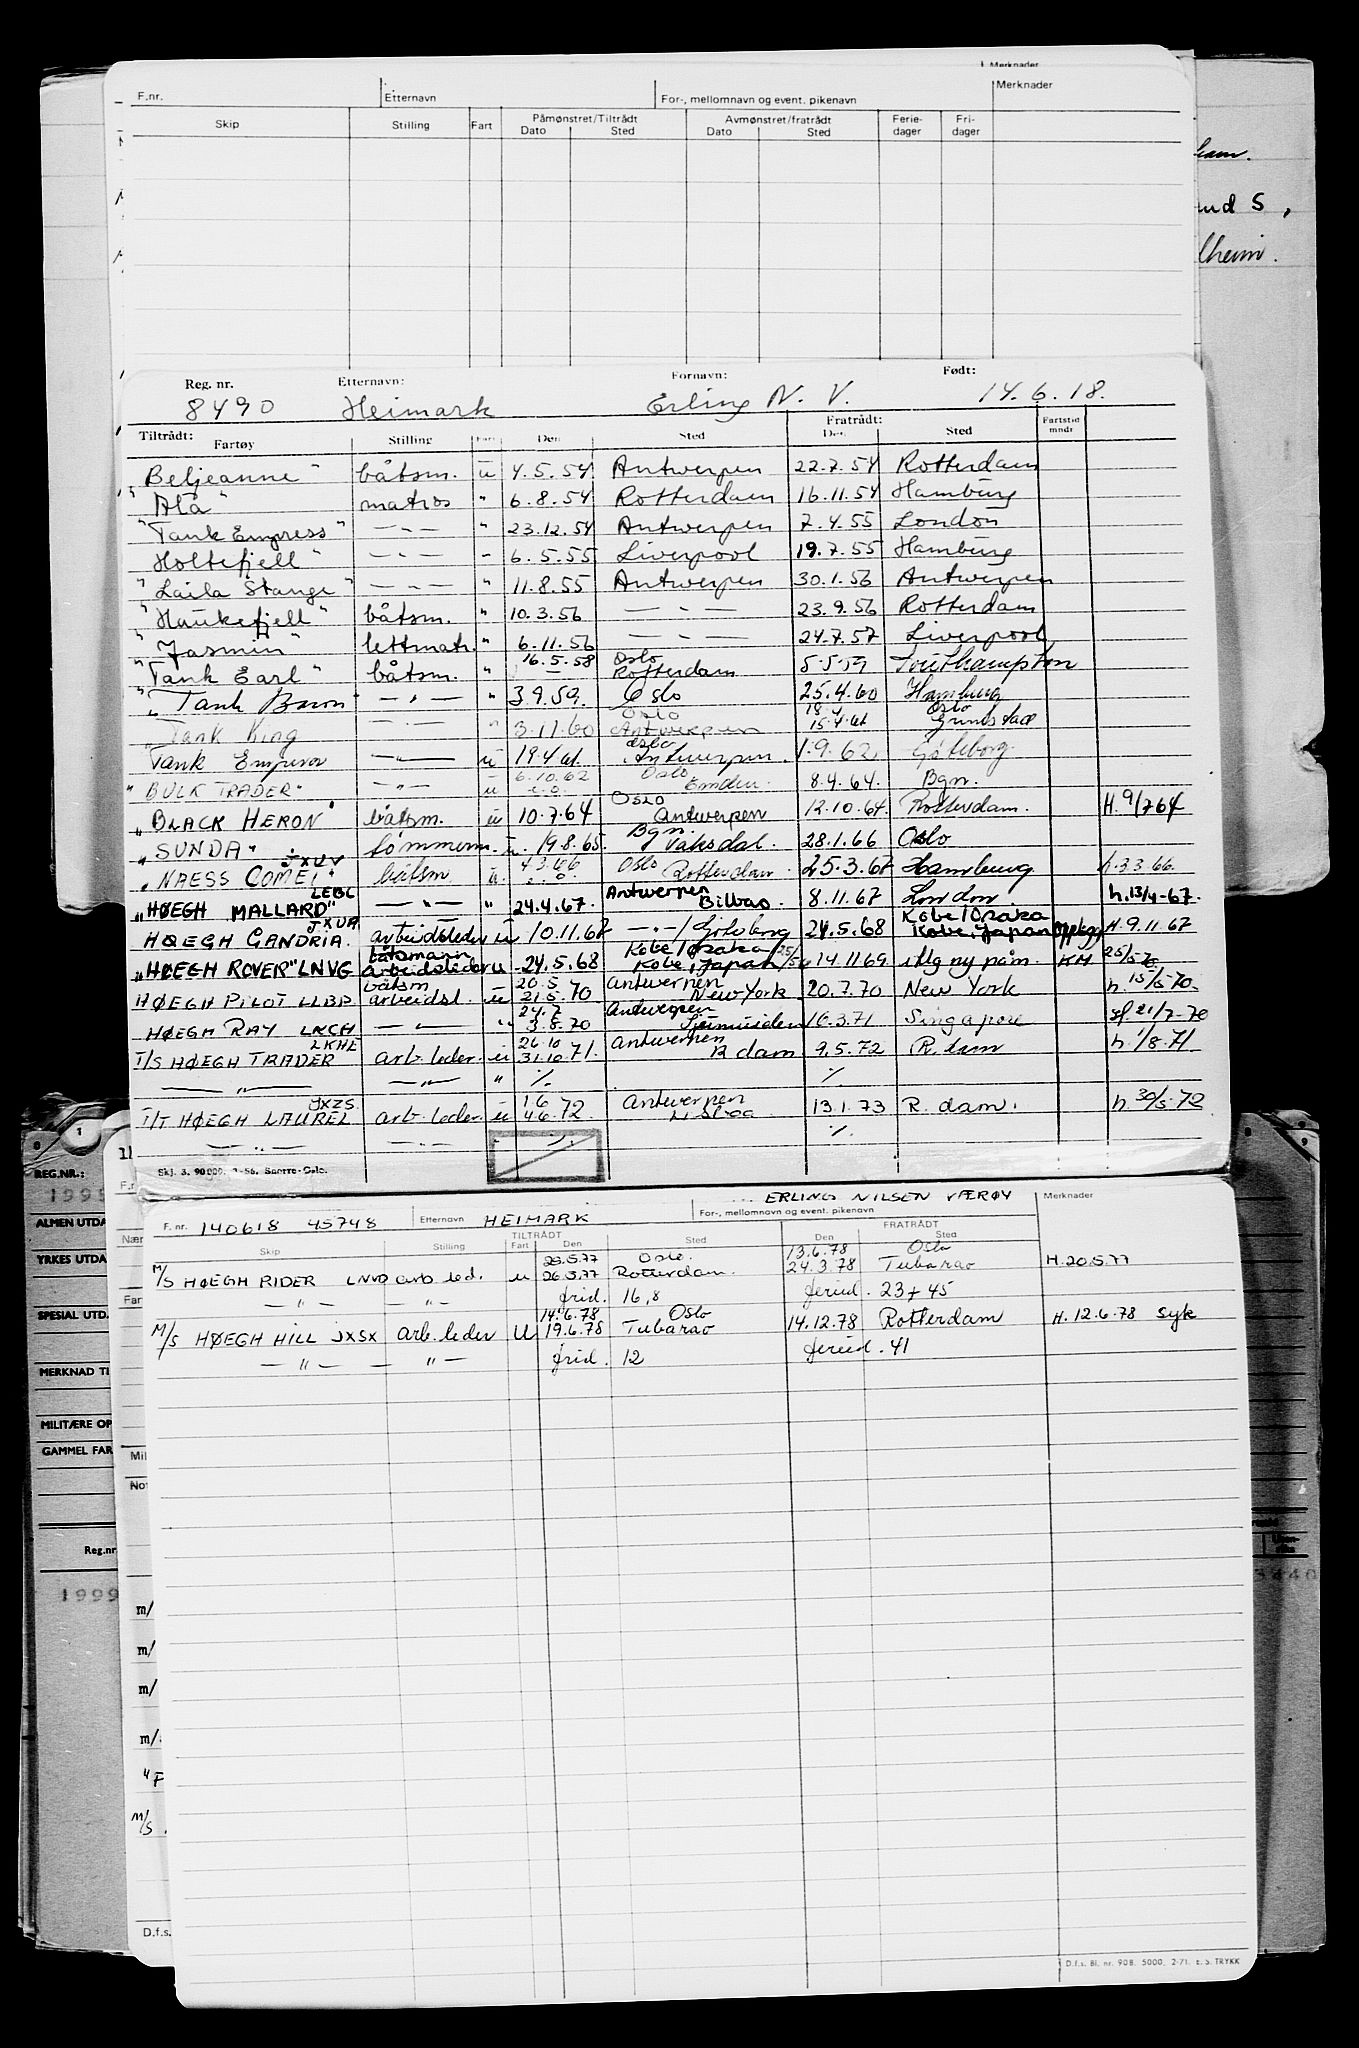 Merknader
F.nr. Etternavn For-, mellomnavn og event. pikenavn Merknader
Skip Stilling Fart Påmønstret/Tiltrådt Dato Sted Avmønstret/fratrådt Dato Sted Ferie-dager Fri-dager
Reg. nr. Etternavn: Fornavn: Født:
8490 Heimark Erling N. V. 14.6.18.
Tiltrådt: Fratrådt:
Fartøy Stilling Fart Den Sted Den Sted Fartstid mndr
"Beljeanne" båtsm. u 4.5.54 Antwerpen 22.7.54 Rotterdam
"Ala" matros " 6.8.54 Rotterdam 16.11.54 Hamburg
"Tank Empress" — " — " 23.12.54 Antwerpen 7.4.55 London
"Holtefjell" — " — " 6.5.55 Liverpool 19.7.55 Hamburg
"Laila Stange" — " — " 11.8.55 Antwerpen 30.1.56 Antwerpen
"Haukefjell" båtsm. " 10.3.56 — " — 23.9.56 Rotterdam
"Jasmin" lettmatr. " 6.11.56 — " — 24.7.57 Liverpool
"Tank Earl" båtsm. " 16.5.58 Oslo Rotterdam 5.5.59 Southampton
"Tank Baron" — " — " 3.9.59. Oslo 25.4.60 Hamburg
"Tank King — " — " 3.11.60 Oslo Antwerpen 18.4 15.4.61 Oslo
Tank Emperor — " — u 19.4.61. Oslo Antwerpen. 1.9.62 Göteborg.
"BULK TRADER" — " — u 6.10.62 Oslo Emden. 8.4.64. Bgn.
"BLACK HERON" båtsm. u 10.7.64 OSLO Antwerpen 12.10.64. Rotterdam. H.9/7 64
"SUNDA" tømmerm. u. 19.8.65. Bgn. Vaksdal. 28.1.66 Oslo
"NAESS COMET" JXUV båtsm u. 4.3.66 Oslo Rotterdam. 25.3.67 Hamburg. h.3.3.66.
"HØEGH MALLARD" LEBL — " — " 24.4.67. Antwerpen Bilbao. 8.11.67 London. h.13/4-67.
HØEGH GANDRIA. JXUA arbeidsleder u 10.11.67 — " — / Göteborg 24.5.68 Kobe/Osaka Kobe, Japan H.9.11 67
"HØEGH ROVER" LNVG båtsmann arbeidsleder u -24.5.68 Kobe/Osaka Kobe, Japan 14.11 69 iflg ny påm. KH 25/5-70
HØEGH PILOT LLBP båtsm arbeidsl. u 20.5 21.5.70 Antwerpen New York 20.7.70 New York h 15/5-70.
HØEGH RAY LKCH — " — " 24.7 3.8.70 Antwerpen 16.3.71 Singapore 21/7-70
T/S HØEGH TRADER LKHL arb.leder. u 26.10 31.10.71. Antwerpen R dam 9.5.72 R.dam h. 1/8.71
— " — — " — " ·/. ·/.
T/T HØEGH LAUREL JXZS arb. leder. u 1.6 4.6.72 Antwerpen 13.1.73 R. dam. h 30/5.72
— " — — " — ·/.
Skj. 3. 90 000. 3-56. Snorre-Oslo.
ERLING NILSEN VÆRØY Merknader
F. nr. 140618 45748 Etternavn HEIMARK For-, mellomnavn og event. pikenavn
TILTRÅDT FRATRÅDT
Skip Stilling Fart Den Sted Den Sted
M/S HØEGH RIDER LNVO arb. led. u 26.5.77 Oslo. Rotterdam. 13.6.78 24.3.78 Oslo Tubarao H.20.5.77
— " — — " — frid. 16,8 feried. 23+45
M/S HØEGH HILL JXSX arb.leder U 14.6.78 19.6.78 Oslo Tubarao 14.12.78 Rotterdam H.12.6.78 syk
— " — — " — frid. 12 feried. 41
REG.NR.:
ALMEN UTDA
YRKES UTDA
SPESIAL UTD.
MERKNAD TI
MILITÆRE OP
GAMMEL FAR
Reg.nr
1999
D.f.s.
D.f.s. Bl. nr. 908. 5000. 2-71. E.S. TRYKK